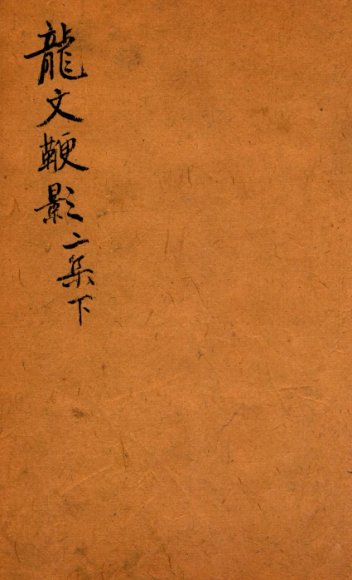 龍文鞭影二集下